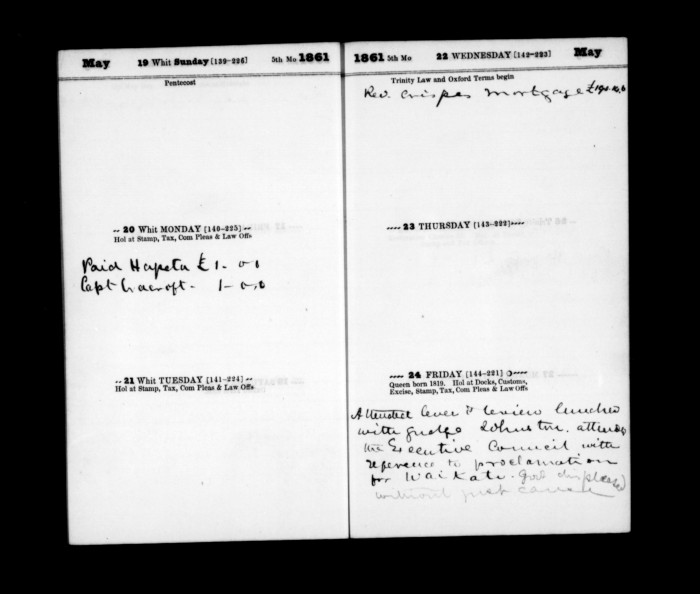 May 19 Whit Sunday [139-226] 5th Mo 1861
Pentecost
-- 20 Whit MONDAY [140-225] --
Hol at Stamp, Tax, Com Pleas & Law Offs
Paid Hapeta £1-0-0
Capt Cracroft - 1-0-0
-- 21 Whit TUESDAY [141-224] --
Hol at Stamp, Tax, Com Pleas & Law Offs
1861 5th Mo 22 WEDNESDAY [142-223] May
Trinity Law and Oxford Terms begin
Rev. Crispes Mortgage
---- 23 THURSDAY [143-222] ----
---- 24 FRIDAY [144-221] ----
Queen born 1819. Hol at Docks, Customs,
Excise, Stamp, Tax, Com Pleas & Law Offs
Attended Levee & review lunched
with Judge Johnston. attended
the Executive Council with
reference to proclamation
for Waikato. Gov displeased
without just cause